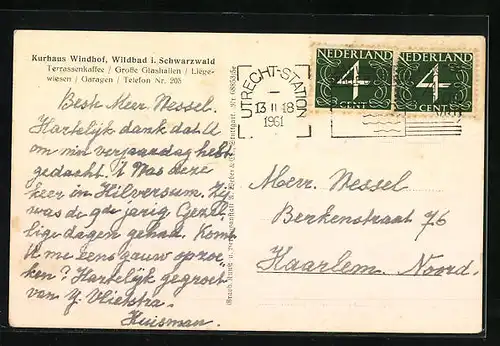 Kurhaus Windhof, Wildbad i. Schwarzwald
Terrassenkaffee / Große Glashallen / Liege-
wiesen / Garagen / Telefon Nr. 205
Beste Meer Wessel.
Hartelijk dank dat U
om mijn verjaardag hebt
gedacht. 't Was deze
keer in Hilversum. Zij
was de jarig Gezel-
lige dagen gehad. Komt
U me eens gauw opzoe-
ken? Hartelijk gegroet
van Y. Vlietstra.
Huisman.
UTRECHT-STATION
13 II 18
1961
NEDERLAND
4
CENT
NEDERLAND
4
CENT
Merr. Wessel
Berkenstraat 76
Haarlem Noord.